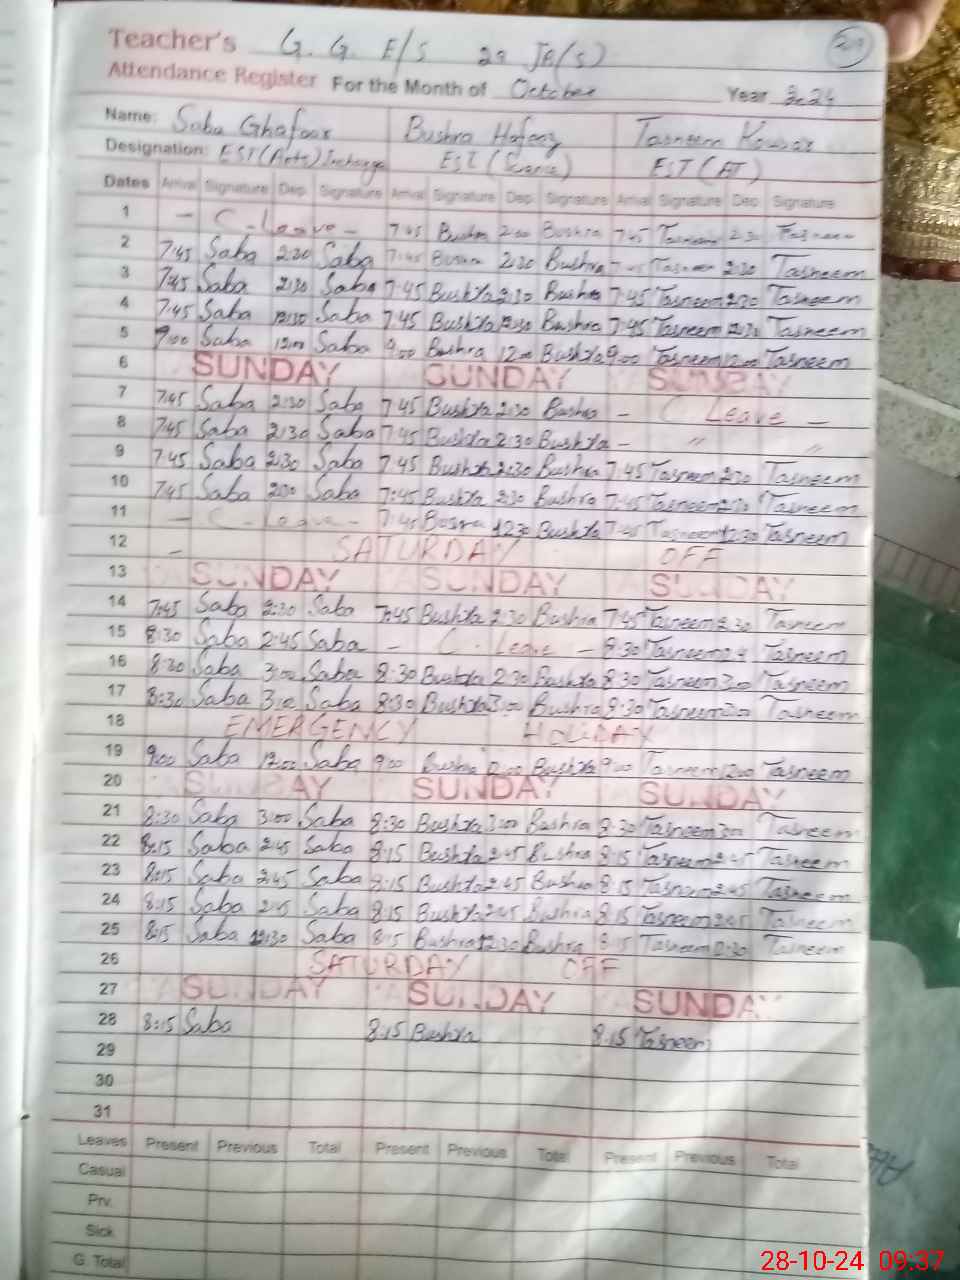 Teacher's G. G. E/S 29 JB(S)
Attendance Register For the Month of October Year 2024
Name: Saba Ghafoor Bushra Hafeez Tasneem Kowsar
Designation: EST(Arts) Incharge EST (Science) EST (AT)
Dates Arrival Signature Dep Signature Arrival Signature Dep. Signature Arrival Signature Dep Signature
1 - C-Leave - 7:45 Bushra 2:30 Bushra 7:45 Tasneem 2:30 Tasneem
2 7:45 Saba 2:30 Saba 7:45 Bushra 2:30 Bushra Tasneem 2:30 Tasneem
3 7:45 Saba 2:30 Saba 7:45 Bushra 2:30 Bushra 7:45 Tasneem 2:30 Tasneem
4 7:45 Saba 12:30 Saba 7:45 Bushra 12:30 Bushra 7:45 Tasneem 12:30 Tasneem
5 9:00 Saba 12:00 Saba 9:00 Bushra 12:00 Bushra 9:00 Tasneem 12:00 Tasneem
6 SUNDAY SUNDAY SUNDAY
7 7:45 Saba 2:30 Saba 7:45 Bushra 2:30 Bushra - C. Leave -
8 7:45 Saba 2:30 Saba 7:45 Bushra 2:30 Bushra - " "
9 7:45 Saba 2:30 Saba 7:45 Bushra 2:30 Bushra 7:45 Tasneem 2:30 Tasneem
10 7:45 Saba 2:30 Saba 7:45 Bushra 2:30 Bushra 7:45 Tasneem 2:30 Tasneem
11 - C-Leave - 7:45 Bushra 12:30 Bushra 7:45 Tasneem 12:30 Tasneem
12 - SATURDAY OFF
13 SUNDAY SUNDAY SUNDAY
14 7:45 Saba 2:30 Saba 7:45 Bushra 2:30 Bushra 7:45 Tasneem 2:30 Tasneem
15 8:30 Saba 2:45 Saba - C. Leave - 8:30 Tasneem Tasneem
16 8:30 Saba 3:00 Saba 8:30 Bushra 2:30 Bushra 8:30 Tasneem 3:00 Tasneem
17 8:30 Saba 3:00 Saba 8:30 Bushra 3:00 Bushra 8:30 Tasneem 3:00 Tasneem
18 EMERGENCY HOLIDAY
19 9:00 Saba 12:00 Saba 9:00 Bushra 12:00 Bushra 9:00 Tasneem 12:00 Tasneem
20 SUNDAY SUNDAY SUNDAY
21 8:30 Saba 3:00 Saba 8:30 Bushra 3:00 Bushra 8:30 Tasneem 3:00 Tasneem
22 8:15 Saba 2:45 Saba 8:15 Bushra 2:45 Bushra 8:15 Tasneem 2:45 Tasneem
23 8:15 Saba 2:45 Saba 8:15 Bushra 2:45 Bushra 8:15 Tasneem 2:45 Tasneem
24 8:15 Saba 2:45 Saba 8:15 Bushra 2:45 Bushra 8:15 Tasneem 2:45 Tasneem
25 8:15 Saba 12:30 Saba 8:15 Bushra 12:30 Bushra 8:15 Tasneem 12:30 Tasneem
26 SATURDAY OFF
27 SUNDAY SUNDAY SUNDAY
28 8:15 Saba 8:15 Bushra 8:15 Tasneem
29
30
31
Leaves Present Previous Total Present Previous Total Present Previous Total
Casual
Prv.
Sick
G. Total
28-10-24 09:37